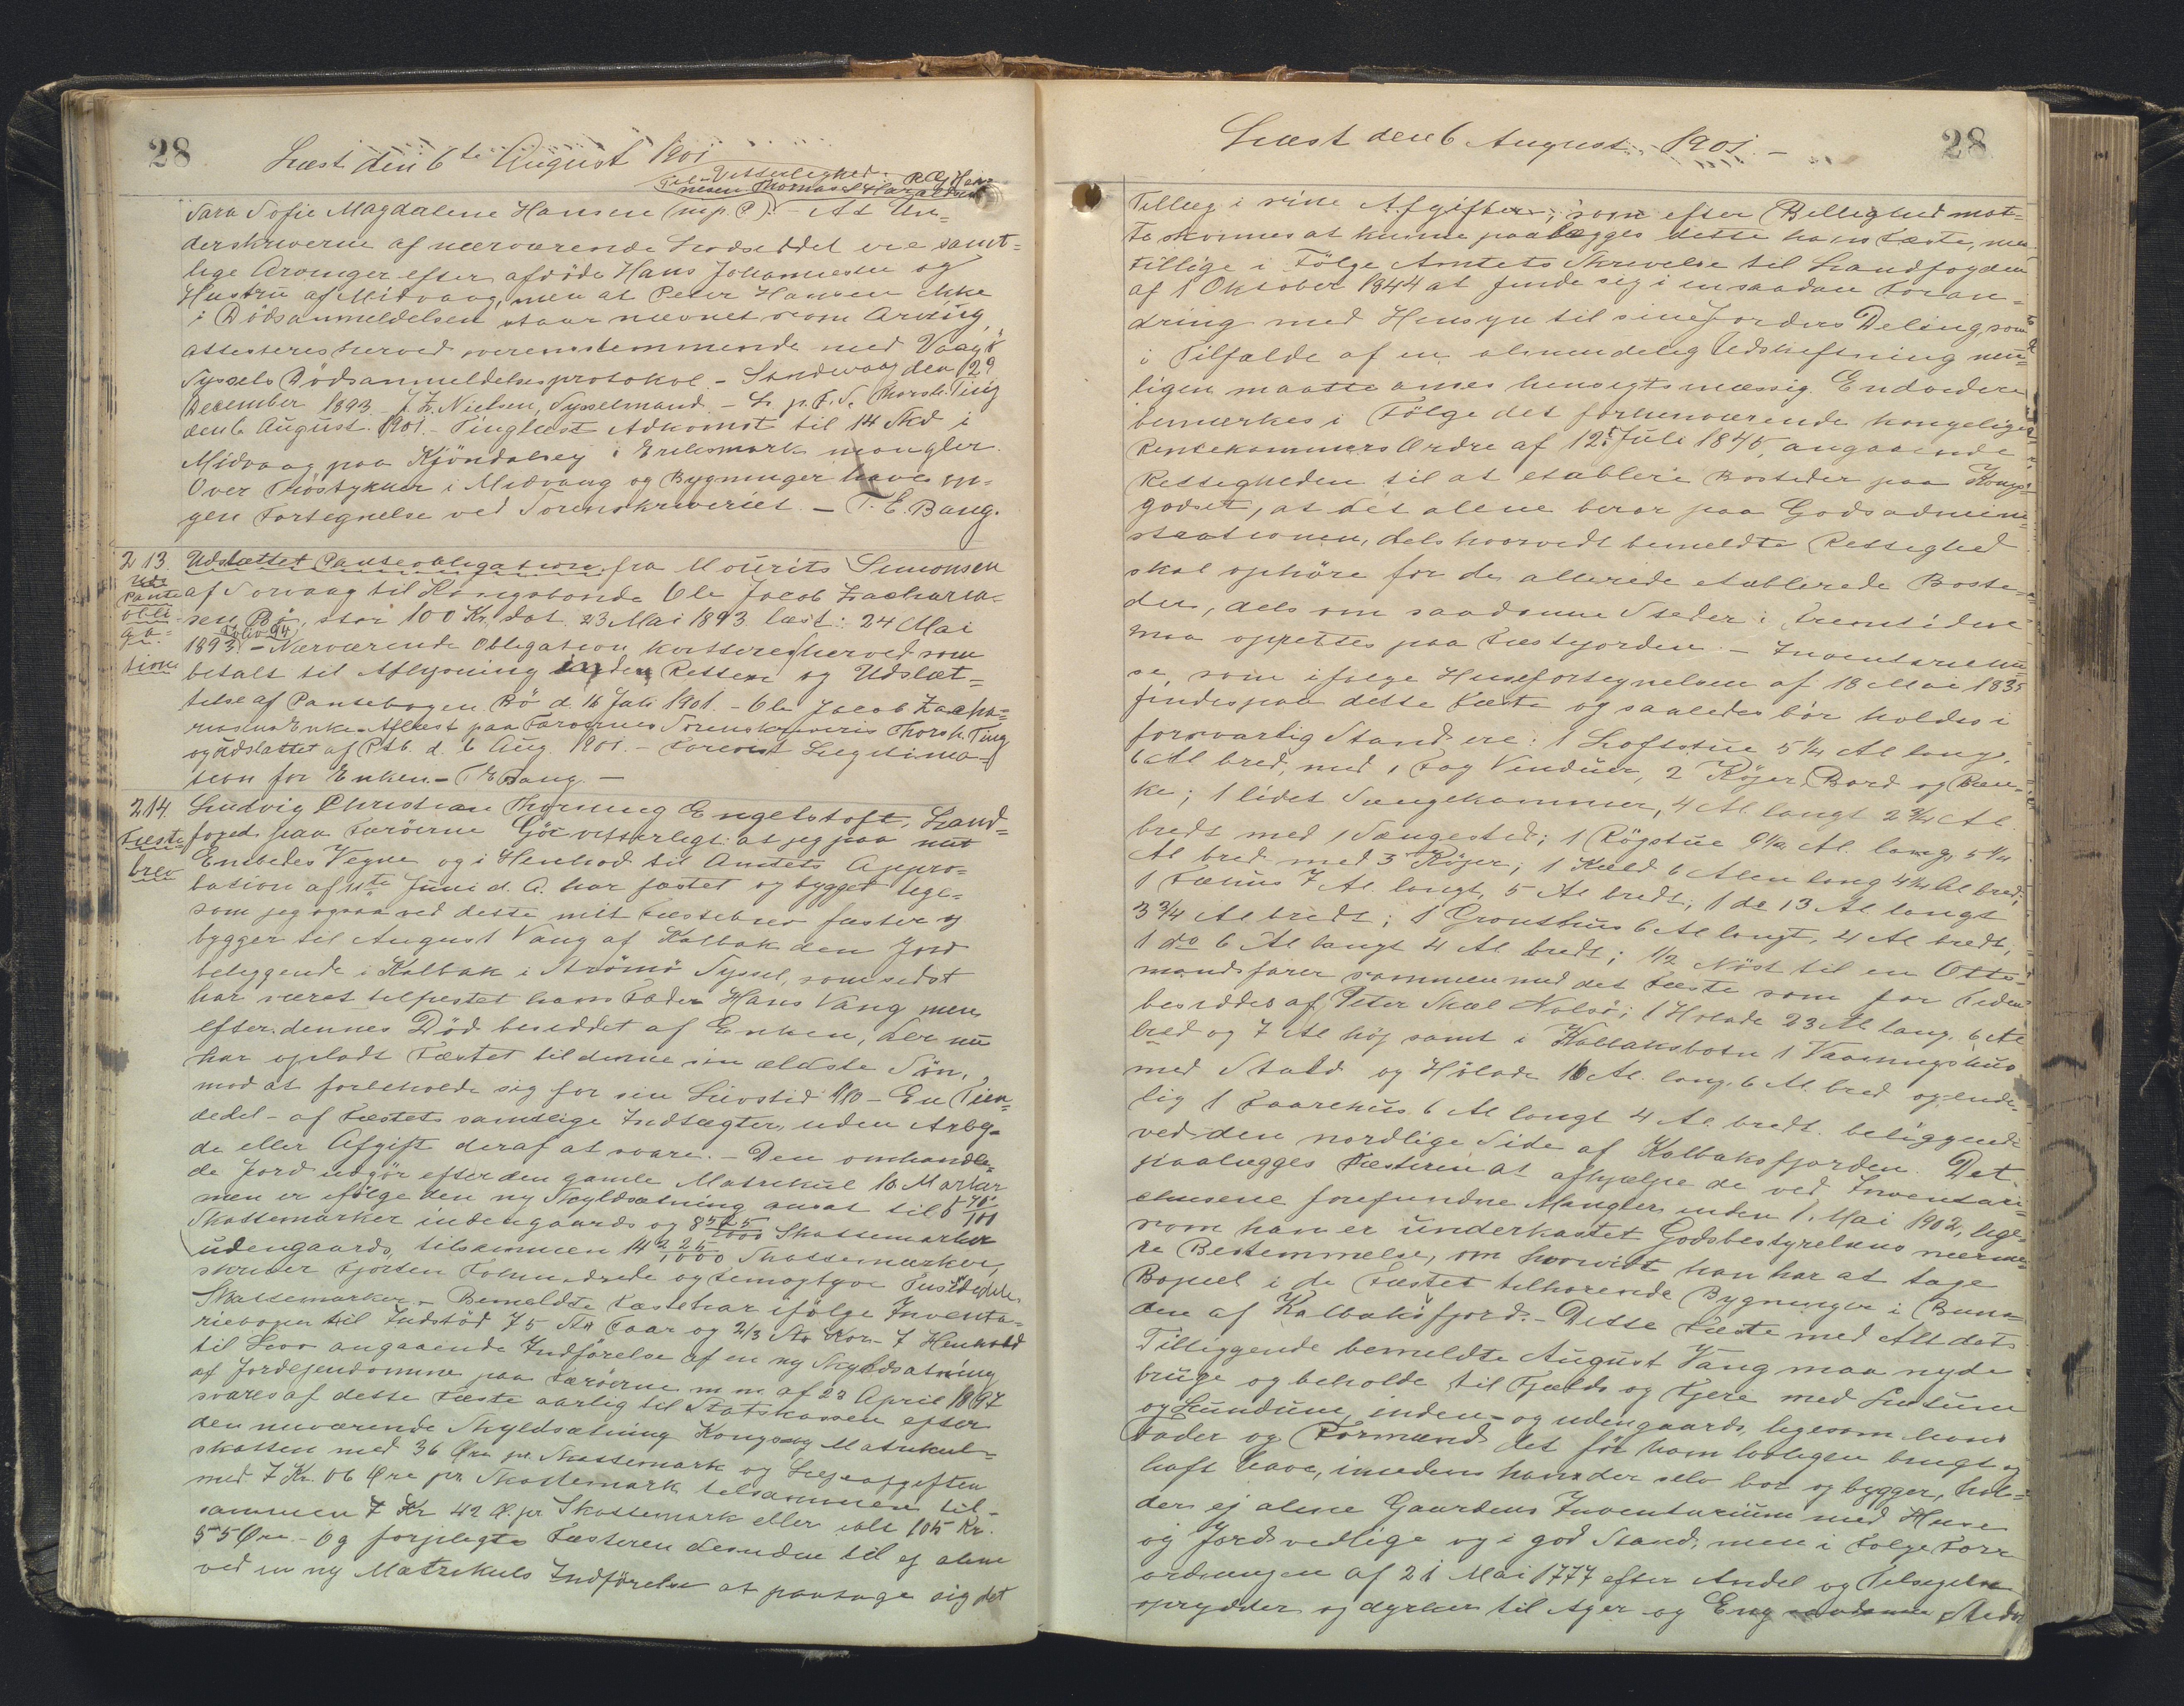 28
Læst den 6te August 1901
Til Vitterlighed. P. O. J. Han-
nesen Thomas
Sara Sofie Magdalene Hansen (m p. P.) - At Un-
derskriverne af nærværende Skødseddel ere samt-
lige Arvinger efter afdøde Hans Johannesen og
Hustru af Midvaag, men at Peter Hansen ikke
i Dödsanmeldelsen staar nævnet som Arving
attesteres herved overensstemmende med Vaagö
Syssels Dödsanmeldelsesprotokol. - Sandevaag den 29
December 1893. J. Z. Nielsen, Sysselmand. - L. p. F. S. Thorsh. Ting
den 6 August 1901. - Tinglæst Adkomst til 14 Skd i
Midvaag paa Kjöndalsey i Eriksmark mangler.
Over Tröstykker i Midvaag og Bygninger haves in-
gen Fortegnelse ved Sorenskriveriet. - T. E. Bang.
213. Udslættet Panteobligation fra Mourits Simonsen
Pante af Sorvaag til Kongsbonde Ole Jacob Zacharia-
obli- sen Bö, stor 100 Kr. dat. 23 Mai 1893 læst: 24 Mai
ga- Folio 94
1893. - Nærværende Obligation kvitteres herved som
tion betalt til Aflysning inden Retten og Udslæt-
telse af Pantebogen. Bö d. 16 Juli 1901. - Ole Jacob Zacha-
riasens Enke. Aflæst paa Færöernes Sorenskriveris Thorsh. Ting
og udslættet af Ptb. d. 6 Aug. 1901. - Forevist Legitima-
tion for Enken. - T. E. Bang. -
214. Ludvig Christian Thorning Engelstoft, Land-
Fæste foged paa Færöerne Gör vitterligt: at jeg paa mit
brev Embedes Vegne og i Henhold til Amtets Appro-
bation af 11te Juni d. A. har fæstet og bygget lige-
som jeg ogsaa ved dette mit Fæstebrev fæster og
bygger til August Vang af Kalbak den Jord
beliggende i Kalbak i Strömö Syssel, som sidst
har været tilfæstet hans Fader Hans Vang men
efter dennes Död besiddet af Enken, der nu
har opladt Fæstet til denne sin ældste Sön,
mod at forbeholde sig for sin Livstid 1/10 - En Tien-
dedel - af Fæstets samtlige Indtægter, uden Arbej-
de eller Afgift deraf at svare. - Den omhandle-
de Jord udgör efter den gamle Matrikul 10 Marker
men er ifölge den ny Skyldsætning ansat til 5 70/100
Skattemarker indengaards og 8 525/1000 Skattemarker
udengaards, tilsammen 14 225/1000 Skattemarker,
skriver Fjorten Tohundrede og femogtyve Tusindedele
Skattemarker. - Bemeldte Fæste har ifölge Inventa-
riebogen til Indstöd 75 Stk Faar og 2/3 Stk Kor. - I Henhold
til Lov angaaende Indförelse af en ny Skyldsætning
af Jordejendomme paa Færöerne m m af 23 April 1897
svares af dette Fæste aarlig til Statskassen efter
den nuværende Skyldsætning Kongs og Matrikul-
skatten med 36 Øre pr Skattemark og Lejeafgiften
med 7 Kr. 06 Øre pr Skattemark tilsammen til-
sammen 7 Kr 42 Ø. pr Skattemark eller ialt 105 Kr.
55 Øre. - Og forpligtes Fæsteren desuden til ej alene
ved en ny Matrikuls Indförelse at paatage sig det
Læst den 6 August 1901. -
28
Tillæg i sine Afgifter, som efter Billighed maat-
te skönnes at kunne paalægges dette hans Fæste, men
tillige i Fölge Amtets Skrivelse til Landfogden
af 1 Oktober 1844 at finde sig i en saadan Foran-
dring med Hensyn til sine Jorders Deling, som
i Tilfælde af en almindelig Udskiftning nem-
ligen maatte anses hensigtsmæssig. Endvidere
bemærkes i Fölge det forhenværende kongelige
Rentekammers Ordre af 12 Juli 1845, angaaende
Rettigheden til at etablere Bosteder paa Kongs-
godset, at det alene beror paa Godsadmini-
strationen, dels hvorvidt bemeldte Rettighed
skal ophöre for de allerede etablerede Boste-
der, dels om saadanne Steder i Fremtiden
maa oprettes paa Fæstejorden. - Inventariehu-
se, som ifölge Husefortegnelsen af 18 Mai 1835
findes paa dette Fæste og saaledes bör holdes i
forsvarlig Stand ere: 1 Loftstue 5 1/4 Al lang,
6 Al bred, med 1 Fag Vinduer, 2 Röjer, Bord og Bæn-
ke; 1 lidet Sængekammer, 4 Al. langt 2 3/4 Al
bredt med 1 Sængested; 1 Rögstue 9 1/2 Al. lang, 5 1/4
Al bred med 3 Röjer; 1 Kield 6 Alen lang 4 1/4 Al bred;
1 Fæhus 7 Al. langt, 5 Al bredt; 1 do 13 Al langt
3 3/4 Al bredt; 1 Gronthus 6 Al langt, 4 Al bredt;
1 do 6 Al langt 4 Al bredt; 1/2 Nöst til en Otte-
mandsfarer sammen med det Fæste som for Tiden
besiddes af Peter Skæl Nolsö; 1 Hölade 23 Al lang, 6 Al
bred og 7 Al höj samt i Kalbaksbotn 1 Vaaningshus
med Stald og Hölade 16 Al. lang 6 Al. bred og ende-
lig 1 Faarehus 6 Al langt 4 Al bredt. beliggende
ved den nordlige Side af Kalbaksfjorden. Det
paalægges Fæsteren at afhjælpe de ved Inventari-
ehusene forefundne Mangler inden 1. Mai 1902, lige-
som han er underkastet Godsbestyrelsens nærme-
re Bestemmelse, om hvorvidt han har at tage
Bopæl i de Fæstet tilhorende Bygninger i Bun-
den af Kalbaksfjord. - Dette Fæste med Alt dets
Tilliggende bemeldte August Vang maa nyde
bruge og beholde til Fjælds og Fjere med Luttum
og Lundum, inden- og udengaards, ligesom hans
Fader og Formænd det för ham lovligen brugt og
haft have, imedens han der selv bor og bygger, hol-
der ej alene Gaardens Inventarium med Huse
og Jord vedlige og i god Stand, men i Fölge For-
ordningen af 21 Mai 1777 efter Andel og Tilsigelse
oprydder og dyrker til Ager og Eng saadanne Steder